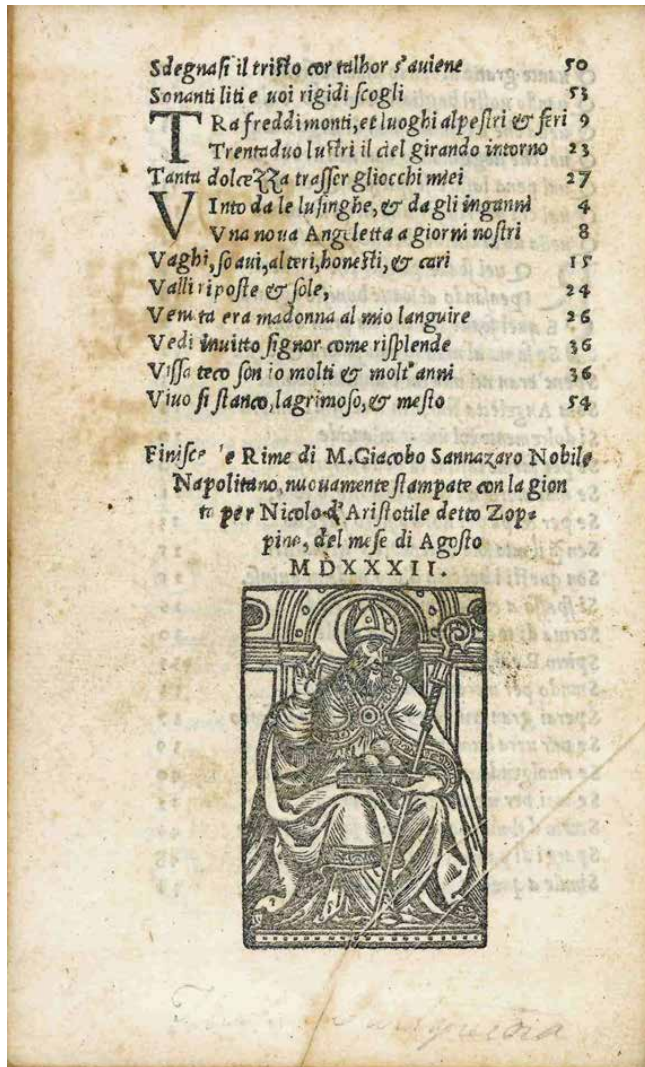 Sdegnasi il tristo cor talhor s'auiene 50
Sonanti liti e uoi rigidi scogli 53
TRa freddi monti, et luoghi alpestri & feri 9
Trentaduo lustri il ciel girando intorno 23
Tanta dolcezza trasser gliocchi miei 27
VInto da le lusinghe, & da gli inganni 4
Vna noua Angeletta a giorni nostri 8
Vaghi, soaui, alteri, honesti, & cari 15
Valli riposte & sole, 24
Venuta era madonna al mio languire 26
Vedi inuitto signor come risplende 36
Vissa teco son io molti & molt'anni 36
Viuo si stanco, lagrimoso, & mesto 54
Finisce le Rime di M. Giacobo Sannazaro Nobile
Napolitano, nuouamente stampate con la gion
ta per Nicolo d'Aristotile detto Zop=
pino, del mese di Agosto
MDXXXII.